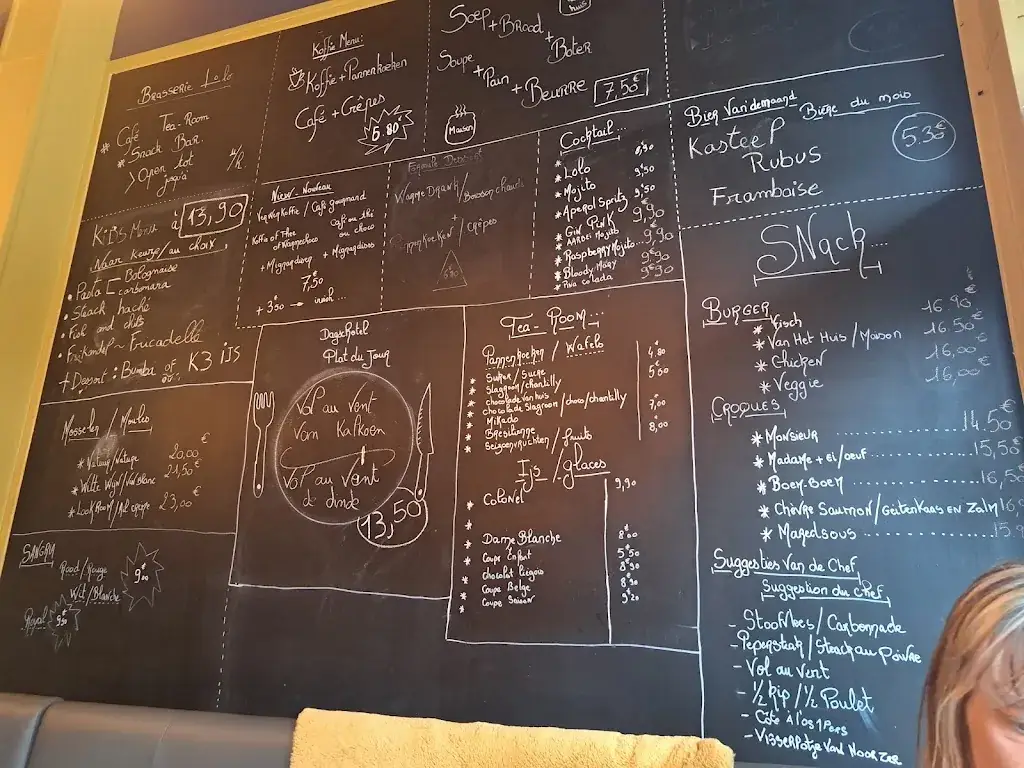 Brasserie Lolo
* Café Tea-Room
* Snack Bar
> Open tot
jusqu'à
Koffie Menu:
Koffie + Pannenkoeken
Café + Crêpes
5.80€
Soep + Brood + Boter
huis
Soupe + Pain + Beurre
7,50€
Maison
Bier Van de maand
Bière du mois
Kasteel
Rubus
Framboise
5.35€
KiDS Menu à 13,90
Naar keuze / au choix,
• Pasta Bolognaise
Carbonara
• Steack haché
• Fish and chips
• Frikandel ~ Fricadelle
+ Dessert: Bumba of K3 iJS
ou
New! Nouveau
Verwen Koffie / Café gourmand
Koffie of Thee
Café ou thé
of Warme choco
ou choco
7,50€
+ 3,50 →
Formule Dessert
Warme Drank / Boisson chaude
+
Pannenkoeken / crêpes
Cocktail...
* Lolo
* Mojito
* Aperol Spritz
* Gin Pink
* Raspberry Mojito
* Bloody Mary
* Pina Colada
SNack...
Burger
* Kisch 16.90€
* Van Het Huis / Maison 16.50€
* Chicken 16,00€
* Veggie 16,00€
Croques
* Monsieur 14.50€
* Madame + ei/oeuf 15,50€
* Boem-boem 16,50
* Chèvre Saumon / Geitenkaas en Zalm
* Maredsous
Mosselen / Moules
* Natuur / Nature 20,00€
* Witte Wijn / Vin blanc 21,50€
* Look Room / Ail crème 23,00€
SANGRIA
Rood / Rouge
Wit / Blanche
9€
Royal
9,50
Dagschotel
Plat du Jour
Vol au Vent
Van Kalkoen
Vol au Vent
de dinde
13,50€
Tea-Room...
Pannenkoeken / Wafels
* Suiker / Sucre 4.80
* Slagroom / chantilly 5.60
* chocolade van huis
* chocolade Slagroom / choco / chantilly
* Mikado 7,00
* Bresilienne
* Seizoenvruchten / fruits 8,00
Ijs / glaces
* Colonel 9,90
* Dame Blanche
* Coupe Enfant 5.50
* Chocolat Liégois
* Coupe Belge
* Coupe
Suggesties Van de Chef
Suggestion du chef
- Stoofvlees / Carbonnade
- Pepersteak / Steack au Poivre
- Vol au Vent
- 1/2 kip / 1/2 Poulet
- Côte à l'os 1 Pers
- Visserpotje Van Noorzee